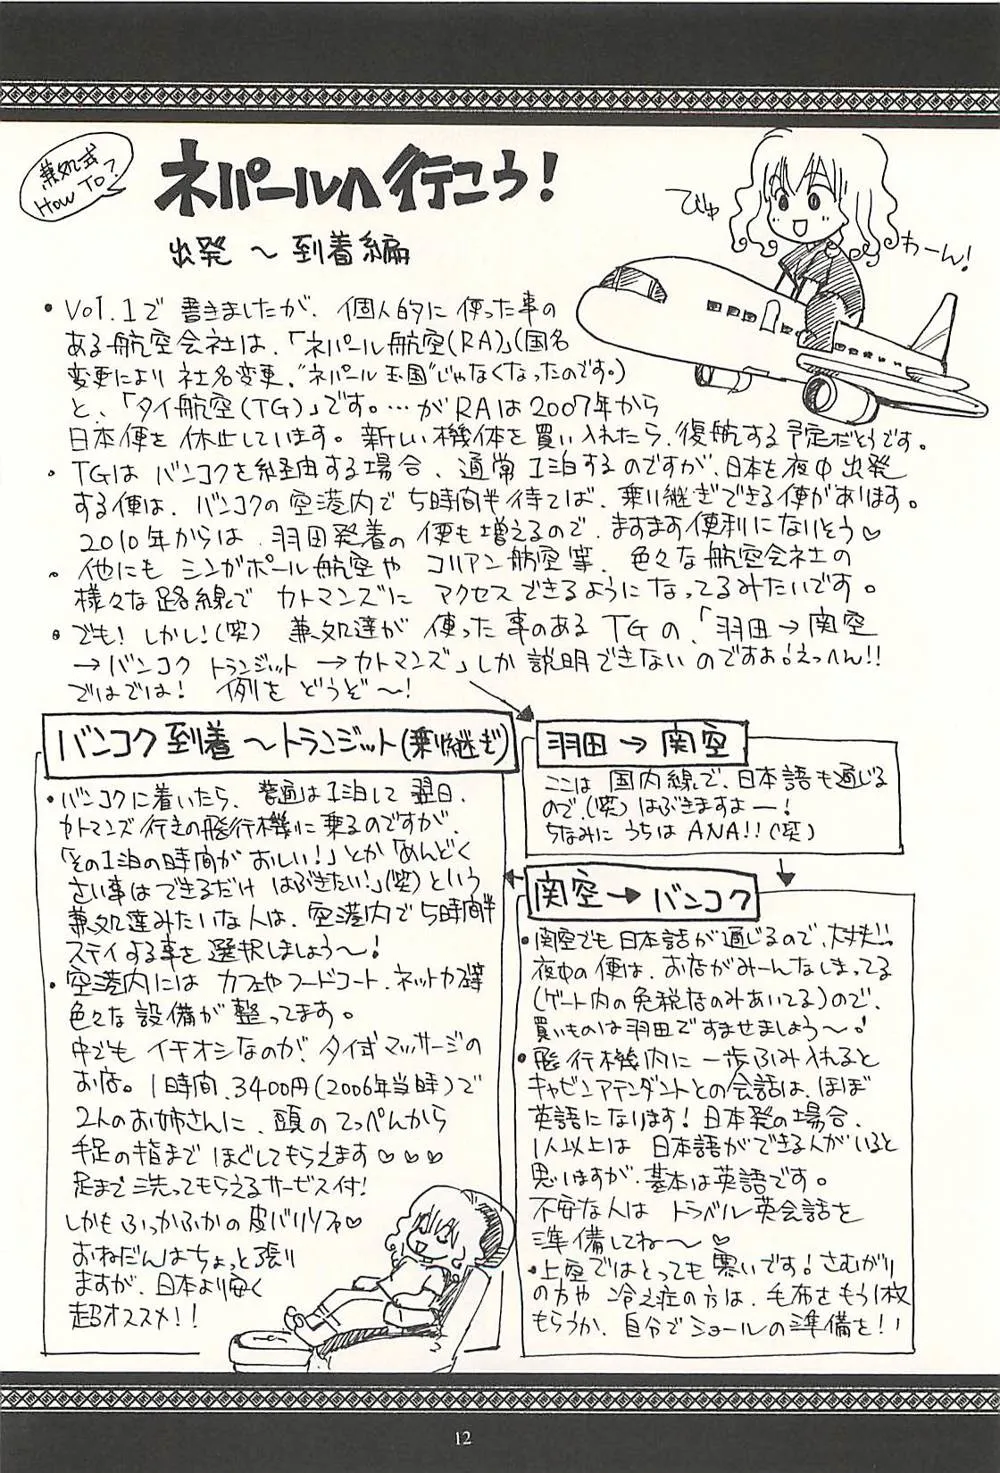 兼処式
HOW TO?
ネパールへ行こう!
出発 ~ 到着編
びゅ
わーん!
・Vol.1で 書きましたが、個人的に 使った事の
ある航空会社は、「ネパール航空(RA)」(国名
変更により 社名変更。"ネパール王国"じゃなくなったのです。)
と、「タイ航空(TG)」です。…がRAは2007年から
日本便を 休止しています。新しい機体を買い入れたら、復航する予定だそうです。
・TGは バンコクを経由する場合、通常1泊するのですが、日本を夜中出発
する便は、バンコクの空港内で5時間半待てば、乗り継ぎできる便があります。
2010年からは、羽田発着の便も増えるので、ますます便利になりそう♡
・他にも シンガポール航空や コリアン航空等、色々な航空会社の
様々な路線で カトマンズに アクセスできるようになってるみたいです。
・でも!しかし!(笑) 兼処達が 使った事のあるTGの、「羽田→関空
→バンコク トランジット →カトマンズ」しか説明できないのですよ!えっへん!!
ではでは! 例を どうぞ~!
羽田 → 関空
ここは 国内線で、日本語も通じる
ので、(笑) はぶきますよー!
ちなみに うちは ANA!!(笑)
関空→バンコク
・関空でも日本語が通じるので、大丈夫!!
夜中の便は、お店がみーんなしまってる
(ゲート内の免税店のみあいてる)ので、
買いものは羽田ですませましょう~!
・飛行機内に 一歩ふみ入れると
キャビンアテンダントとの会話は、ほぼ
英語になります!日本発の場合、
1人以上は 日本語ができる人がいると
思いますが、基本は英語です。
不安な人は トラベル英会話を
準備してね~♡
・上空ではとっても寒いです!さむがり
の方や 冷え症の方は、毛布をもう1枚
もらうか、自分でショールの準備を!!
バンコク到着~トランジット(乗り継ぎ)
・バンコクに着いたら、普通は1泊して翌日、
カトマンズ行きの飛行機に乗るのですが、
「その1泊の時間が おしい!」とか「めんどく
さい事はできるだけ はぶきたい!」(笑)という
兼処達みたいな人は、空港内で5時間半
ステイする事を 選択しましょう~!
・空港内には カフェやフードコート、ネットカフェ等
色々な 設備が 整ってます。
中でも イチオシなのが、タイ式マッサージの
お店。1時間、3400円(2006年当時)で
2人のお姉さんに、頭のてっぺんから
手足の指まで ほぐしてもらえます♡♡♡
足まで洗ってもらえるサービス付!
しかもふっかふかの皮バリソファ♡
おねだんはちょっと張り
ますが、日本より安く
超オススメ!!
12